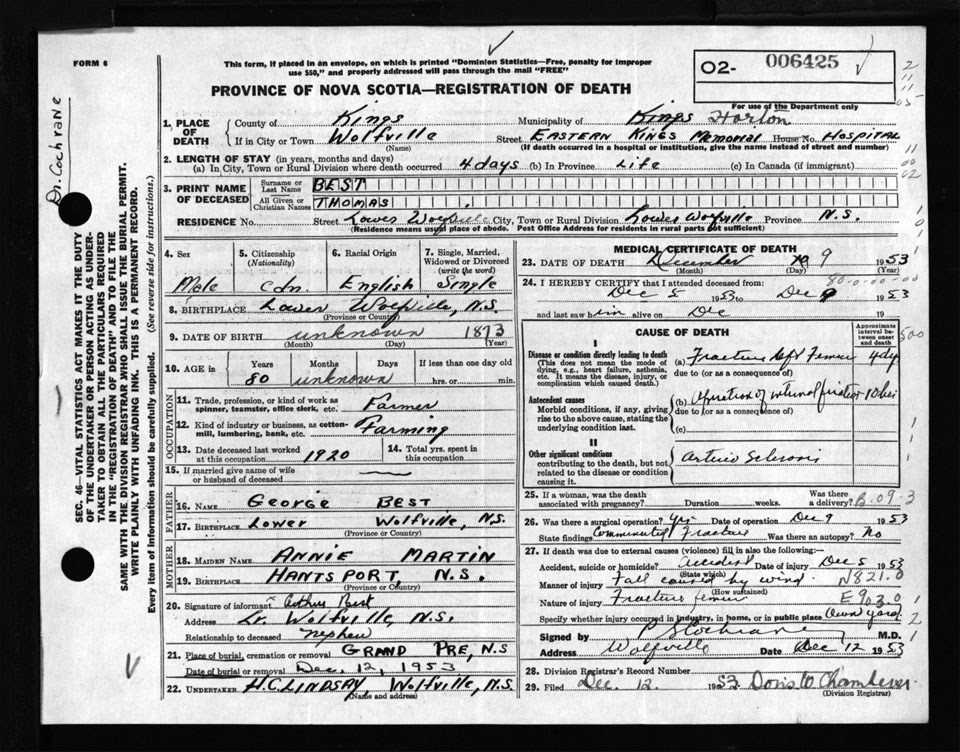 FORM 6
This form, if placed in an envelope, on which is printed "Dominion Statistics—Free, penalty for improper
use $50," and properly addressed will pass through the mail "FREE"
O2- 006425
For use of the Department only
PROVINCE OF NOVA SCOTIA—REGISTRATION OF DEATH
Dr. Cochrane
SEC. 46—VITAL STATISTICS ACT MAKES IT THE DUTY
OF THE UNDERTAKER OR PERSON ACTING AS UNDER-
TAKER TO OBTAIN ALL THE PARTICULARS REQUIRED
IN THE "REGISTRATION OF DEATH" AND TO FILE THE
SAME WITH THE DIVISION REGISTRAR WHO SHALL ISSUE THE BURIAL PERMIT.
WRITE PLAINLY WITH UNFADING INK. THIS IS A PERMANENT RECORD.
Every item of information should be carefully supplied. (See reverse side for instructions.)
1. PLACE OF DEATH
County of Kings Municipality of Kings Horton
If in City or Town Wolfville Street EASTERN KINGS MEMORIAL House No. HOSPITAL
(Name) (If death occurred in a hospital or institution, give the name instead of street and number)
2. LENGTH OF STAY (in years, months and days)
(a) In City, Town or Rural Division where death occurred 4 days (b) In Province Life (c) In Canada (if immigrant)
3. PRINT NAME OF DECEASED
Surname or Last Name BEST
All Given or Christian Names THOMAS
RESIDENCE No. Street Lower Wolfville City, Town or Rural Division Lower Wolfville Province N.S.
(Residence means usual place of abode. Post Office Address for residents in rural parts not sufficient)
4. Sex Male
5. Citizenship (Nationality) Cdn.
6. Racial Origin English
7. Single, Married, Widowed or Divorced (write the word) Single
8. BIRTHPLACE Lower Wolfville, N.S.
(Province or Country)
9. DATE OF BIRTH unknown 1873
(Month) (Day) (Year)
10. AGE in Years 80 Months unknown Days If less than one day old hrs. or min.
OCCUPATION
11. Trade, profession, or kind of work as spinner, teamster, office clerk, etc. Farmer
12. Kind of industry or business, as cotton-mill, lumbering, bank, etc. Farming
13. Date deceased last worked at this occupation 1920
14. Total yrs. spent in this occupation
15. If married give name of wife or husband of deceased —
FATHER
16. NAME George BEST
17. BIRTHPLACE LOWER Wolfville, N.S.
(Province or Country)
MOTHER
18. MAIDEN NAME ANNIE MARTIN
19. BIRTHPLACE HANTSPORT, N.S.
(Province or Country)
20. Signature of informant Arthur Best
Address Lr. Wolfville, N.S.
Relationship to deceased nephew
21. Place of burial, cremation or removal GRAND PRE, N.S
Date of burial or removal Dec. 12, 1953
22. UNDERTAKER H.C. LINDSAY, Wolfville, N.S.
(Name and address)
MEDICAL CERTIFICATE OF DEATH
23. DATE OF DEATH December 9 1953
(Month) (Day) (Year)
24. I HEREBY CERTIFY that I attended deceased from:
Dec 5 1953 to Dec 9 1953
and last saw him alive on Dec 19
CAUSE OF DEATH
Approximate interval between onset and death
I
Disease or condition directly leading to death
(This does not mean the mode of dying, e.g., heart failure, asthenia, etc. It means the disease, injury, or complication which caused death.)
(a) Fracture left Femur 4 dy
due to (or as a consequence of)
Antecedent causes
Morbid conditions, if any, giving rise to the above cause, stating the underlying condition last.
(b) Operation of internal fixation 10 hrs
due to (or as a consequence of)
(c)
II
Other significant conditions
contributing to the death, but not related to the disease or condition causing it.
Arterio Sclerosis
25. If a woman, was the death associated with pregnancy? Duration weeks. Was there a delivery?
B.09.3
26. Was there a surgical operation? Yes Date of operation Dec 9 1953
State findings Comminuted Fracture Was there an autopsy? No
27. If death was due to external causes (violence) fill in also the following:—
Accident, suicide or homicide? accident Date of injury Dec 5 1953
(State which)
Manner of injury Fall caused by wind. N821.0
(How sustained)
Nature of injury Fracture femur E903.0
Specify whether injury occurred in industry, in home, or in public place Own yard
Signed by P S Cochrane M.D.
Address Wolfville Date Dec 12 1953
28. Division Registrar's Record Number
29. Filed Dec. 12 1953 Doris W Chambers
(Division Registrar)